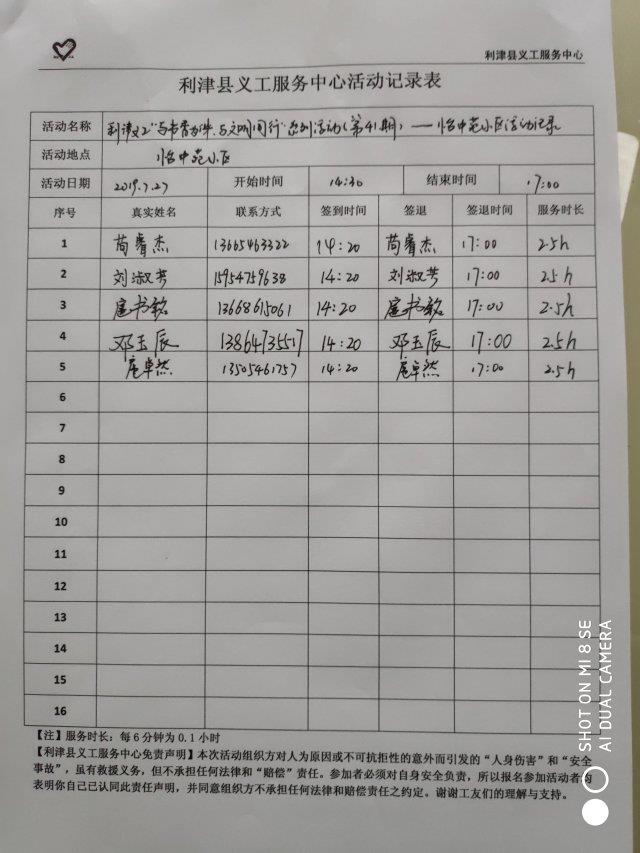 利津县义工服务中心
利津县义工服务中心活动记录表
活动名称 利津义工"与书香为伴 与文明同行"系列活动(第41期)——怡中苑小区活动记录
活动地点 怡中苑小区
活动日期 2019.7.27 开始时间 14:30 结束时间 17:00
序号 真实姓名 联系方式 签到时间 签退 签退时间 服务时长
1 苘睿杰 13665463322 14:20 苘睿杰 17:00 2.5h
2 刘淑芳 15954759638 14:20 刘淑芳 17:00 2.5h
3 扈书铭 13668615061 14:20 扈书铭 17:00 2.5h
4 邓玉辰 13864735517 14:20 邓玉辰 17:00 2.5h
5 扈卓然 13505461757 14:20 扈卓然 17:00 2.5h
6
7
8
9
10
11
12
13
14
15
16
【注】服务时长：每6分钟为0.1小时
【利津县义工服务中心免责声明】本次活动组织方对人为原因或不可抗拒性的意外而引发的“人身伤害”和“安全
事故”，虽有救援义务，但不承担任何法律和“赔偿”责任。参加者必须对自身安全负责，所以报名参加活动者均
表明你自己已认同此责任声明，并同意组织方不承担任何法律和赔偿责任之约定。谢谢工友们的理解与支持。
SHOT ON MI 8 SE
AI DUAL CAMERA